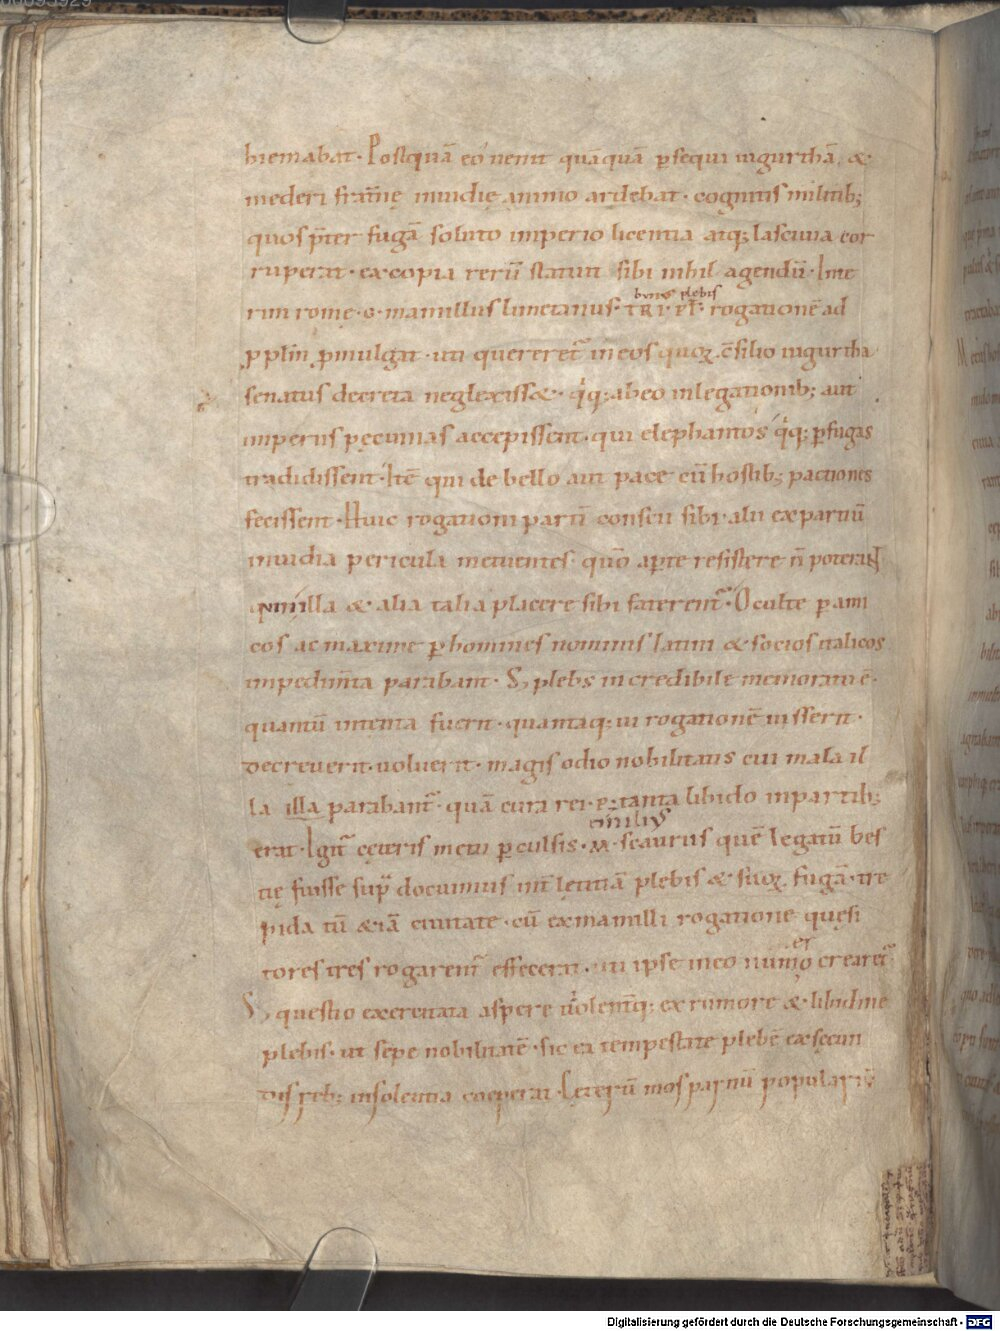 hiemabat· Postquā eo uenit quāquā ꝑsequi iugurthā, &·
mederi frat̄nę inuidię animo ardebat· cognitis militib;
quos p̄ter fugā soluto imperio licentia atq; lasciuia cor
ruperat· ex copia rerū statuit sibi nihil agendū· Inte
bunus plebis
rim rome· G· mamillus limetanus· TRI· PL· rogationē ad
ꝓ pl̄m ꝓmulgat· uti quereret̄ in eos quoꝝ c̄silio iugurtha
senatus decreta neglexiss&· q́q; ab eo in legationib; aut
imperiis pecunias accepissent· qui elephantos q́q; ꝑfugas
tradidissent· Itē qui de bello aut pace cū hostib; pactiones
fecissent· Huic rogationi partī conscii sibi· alii ex partiū
inuidia pericula metuentes· quō aꝑte resistere n̄ poterant
quin illa & alia talia placere sibi faterent̄· Oculte ꝑ ami
cos ac maxime ꝑ homines nominis latini & socios italicos
impedim̄ta parabant· S; plebs incredibile memoratu ē·
quantū intenta fuerit· quantaq; ui rogationē iusserit·
decreuerit· uoluerit· magis odio nobilitatis cui mala il
la illa parabant̄· quā cura rei· p· tanta libido in partib;
emilius
erat· Igit̄ ceteris metu ꝑculsis· M· scaurus quē legatū bes
tie fuisse sup̄ docuimus int̄ letitiā plebis & suoꝝ fugā· tre
pida tū &iā ciuitate· cū ex mamilli rogatione quęsi
er
tores tres rogarent̄ effecerat· uti ipse in eo numo crearet̄
S; questio exercitata aspere uiolent̄q; ex rumore & libidine
plebis· ut sepe nobilitatē· sic ea tempestate plebē ex secun
dis reb; insolentia coeperat· Ceterū mos partiū populariū
Digitalisierung gefördert durch die Deutsche Forschungsgemeinschaft - DFG